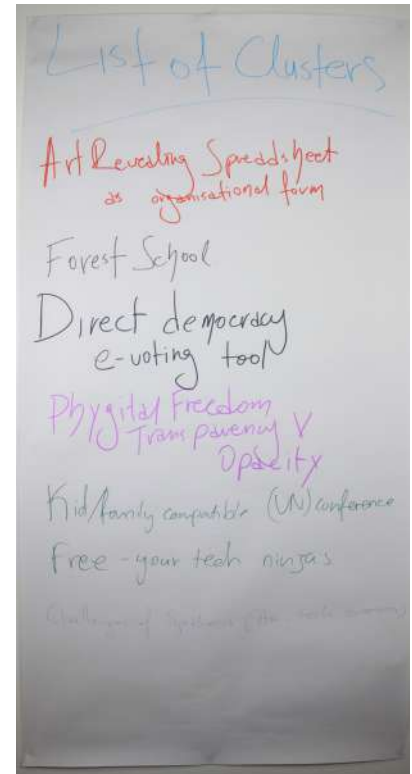 List of Clusters
Art Revealing Spreadsheet
as organisational form
Forest School
Direct democracy
e-voting tool
Phygital Freedom
Transparency V
Opacity
Kid/family compatible (UN)conference
free-your tech ninjas
Challenges of